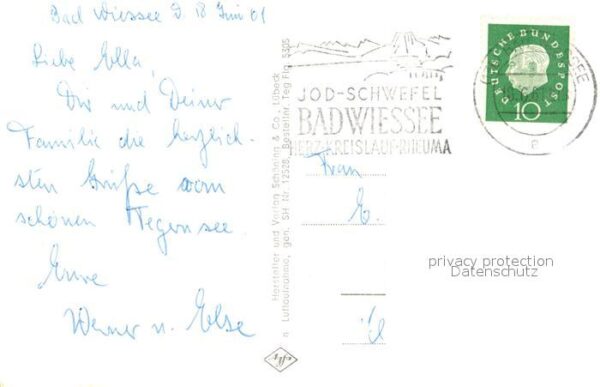 Bad Wiessee d. 18 Juni 61
Liebe Ella,
Dir und Deiner
Familie die herzlich-
sten Grüße vom
schönen Tegernsee.
Eure
Werner u. Else
Hersteller und Verlag Schöning & Co., Lübeck
n. Luftaufnahme, gen. SH Nr. 12528, Besteller Teg Flg. 5305
JOD-SCHWEFEL
BAD WIESSEE
HERZ-KREISLAUF-RHEUMA
DEUTSCHE BUNDESPOST
10
e
Frau
E.
privacy protection
Datenschutz